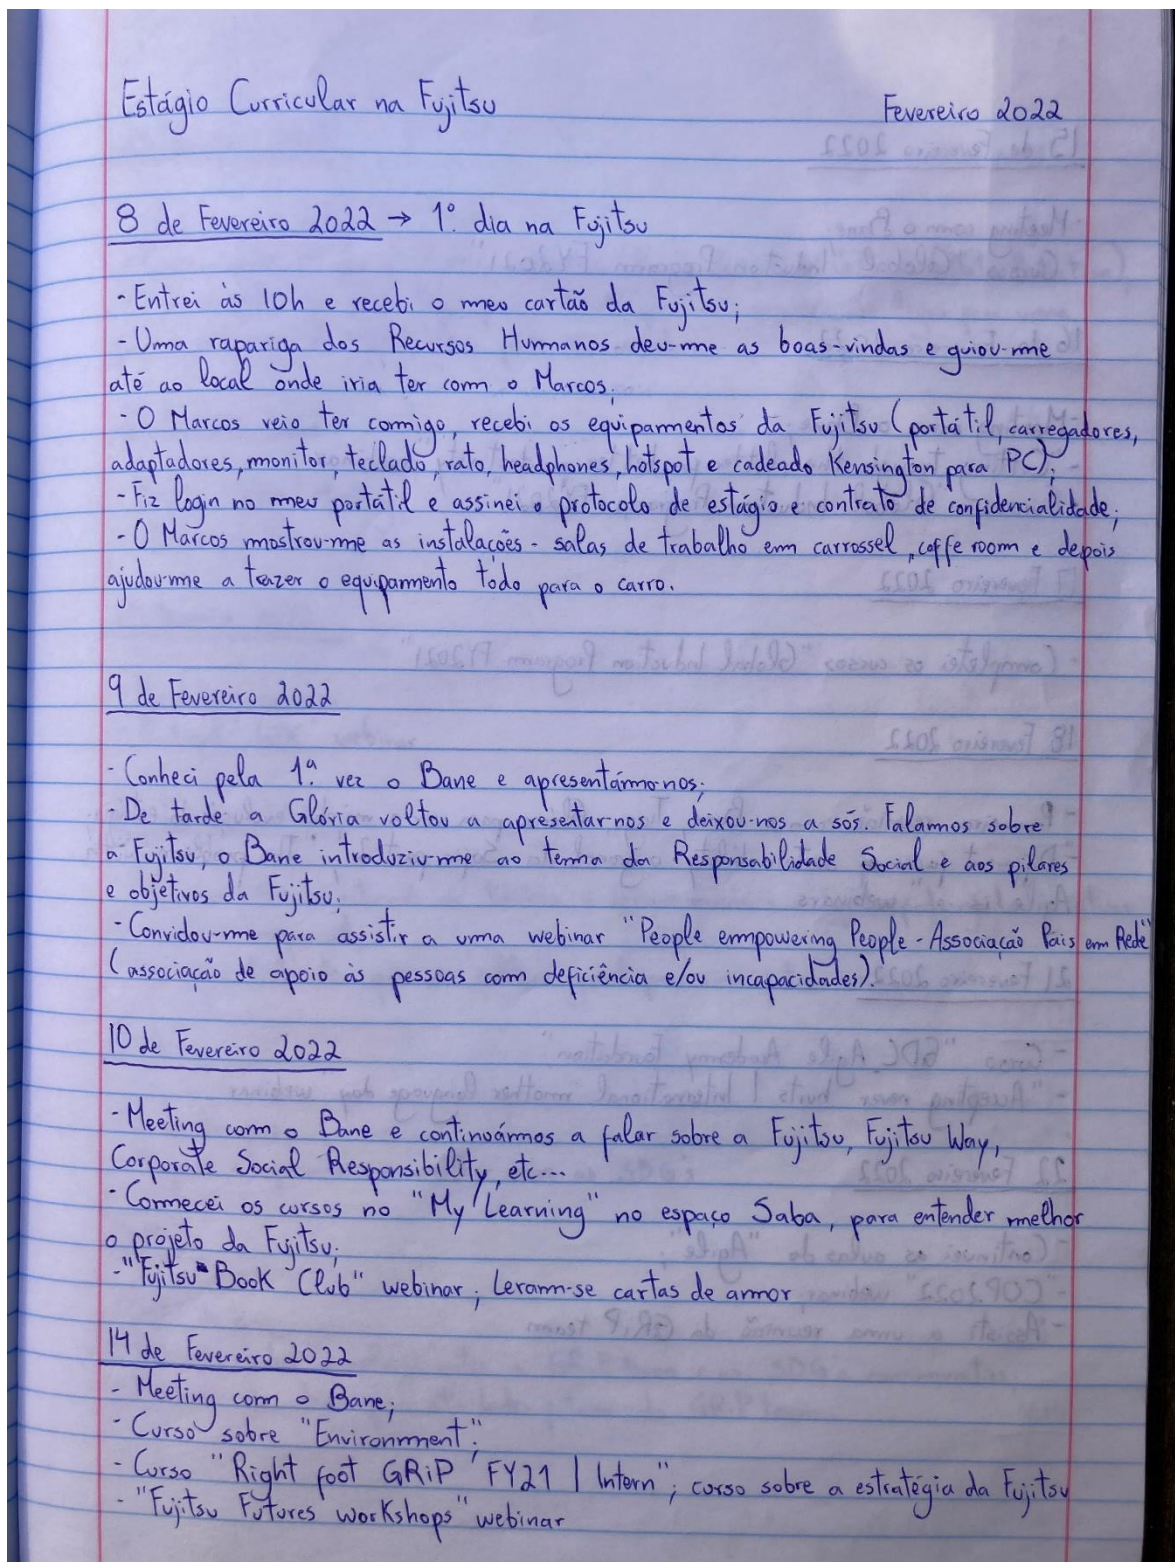 Estágio Curricular na Fujitsu
Fevereiro 2022
8 de Fevereiro 2022 → 1º dia na Fujitsu
- Entrei às 10h e recebi o meu cartão da Fujitsu;
- Uma rapariga dos Recursos Humanos deu-me as boas-vindas e guiou-me
até ao local onde iria ter com o Marcos;
- O Marcos veio ter comigo, recebi os equipamentos da Fujitsu (portátil, carregadores,
adaptadores, monitor, teclado, rato, headphones, hotspot e cadeado Kensington para PC);
- Fiz login no meu portátil e assinei o protocolo de estágio e contrato de confidencialidade;
- O Marcos mostrou-me as instalações - salas de trabalho em carrossel, coffe room e depois
ajudou-me a trazer o equipamento todo para o carro.
9 de Fevereiro 2022
- Conheci pela 1ª vez o Bane e apresentámo-nos;
- De tarde a Glória voltou a apresentar-nos e deixou-nos a sós. Falamos sobre
a Fujitsu, o Bane introduziu-me ao tema da Responsabilidade Social e aos pilares
e objetivos da Fujitsu;
- Convidou-me para assistir a uma webinar "People empowering People - Associação Pais em Rede"
(associação de apoio às pessoas com deficiência e/ou incapacidades).
10 de Fevereiro 2022
- Meeting com o Bane e continuámos a falar sobre a Fujitsu, Fujitsu Way,
Corporate Social Responsibility, etc...
- Comecei os cursos no "My Learning" no espaço Saba, para entender melhor
o projeto da Fujitsu;
- "Fujitsu Book Club" webinar; Leram-se cartas de amor
14 de Fevereiro 2022
- Meeting com o Bane;
- Curso sobre "Environment";
- Curso "Right foot GRiP FY21 | Intern"; curso sobre a estratégia da Fujitsu
- "Fujitsu Futures workshops" webinar